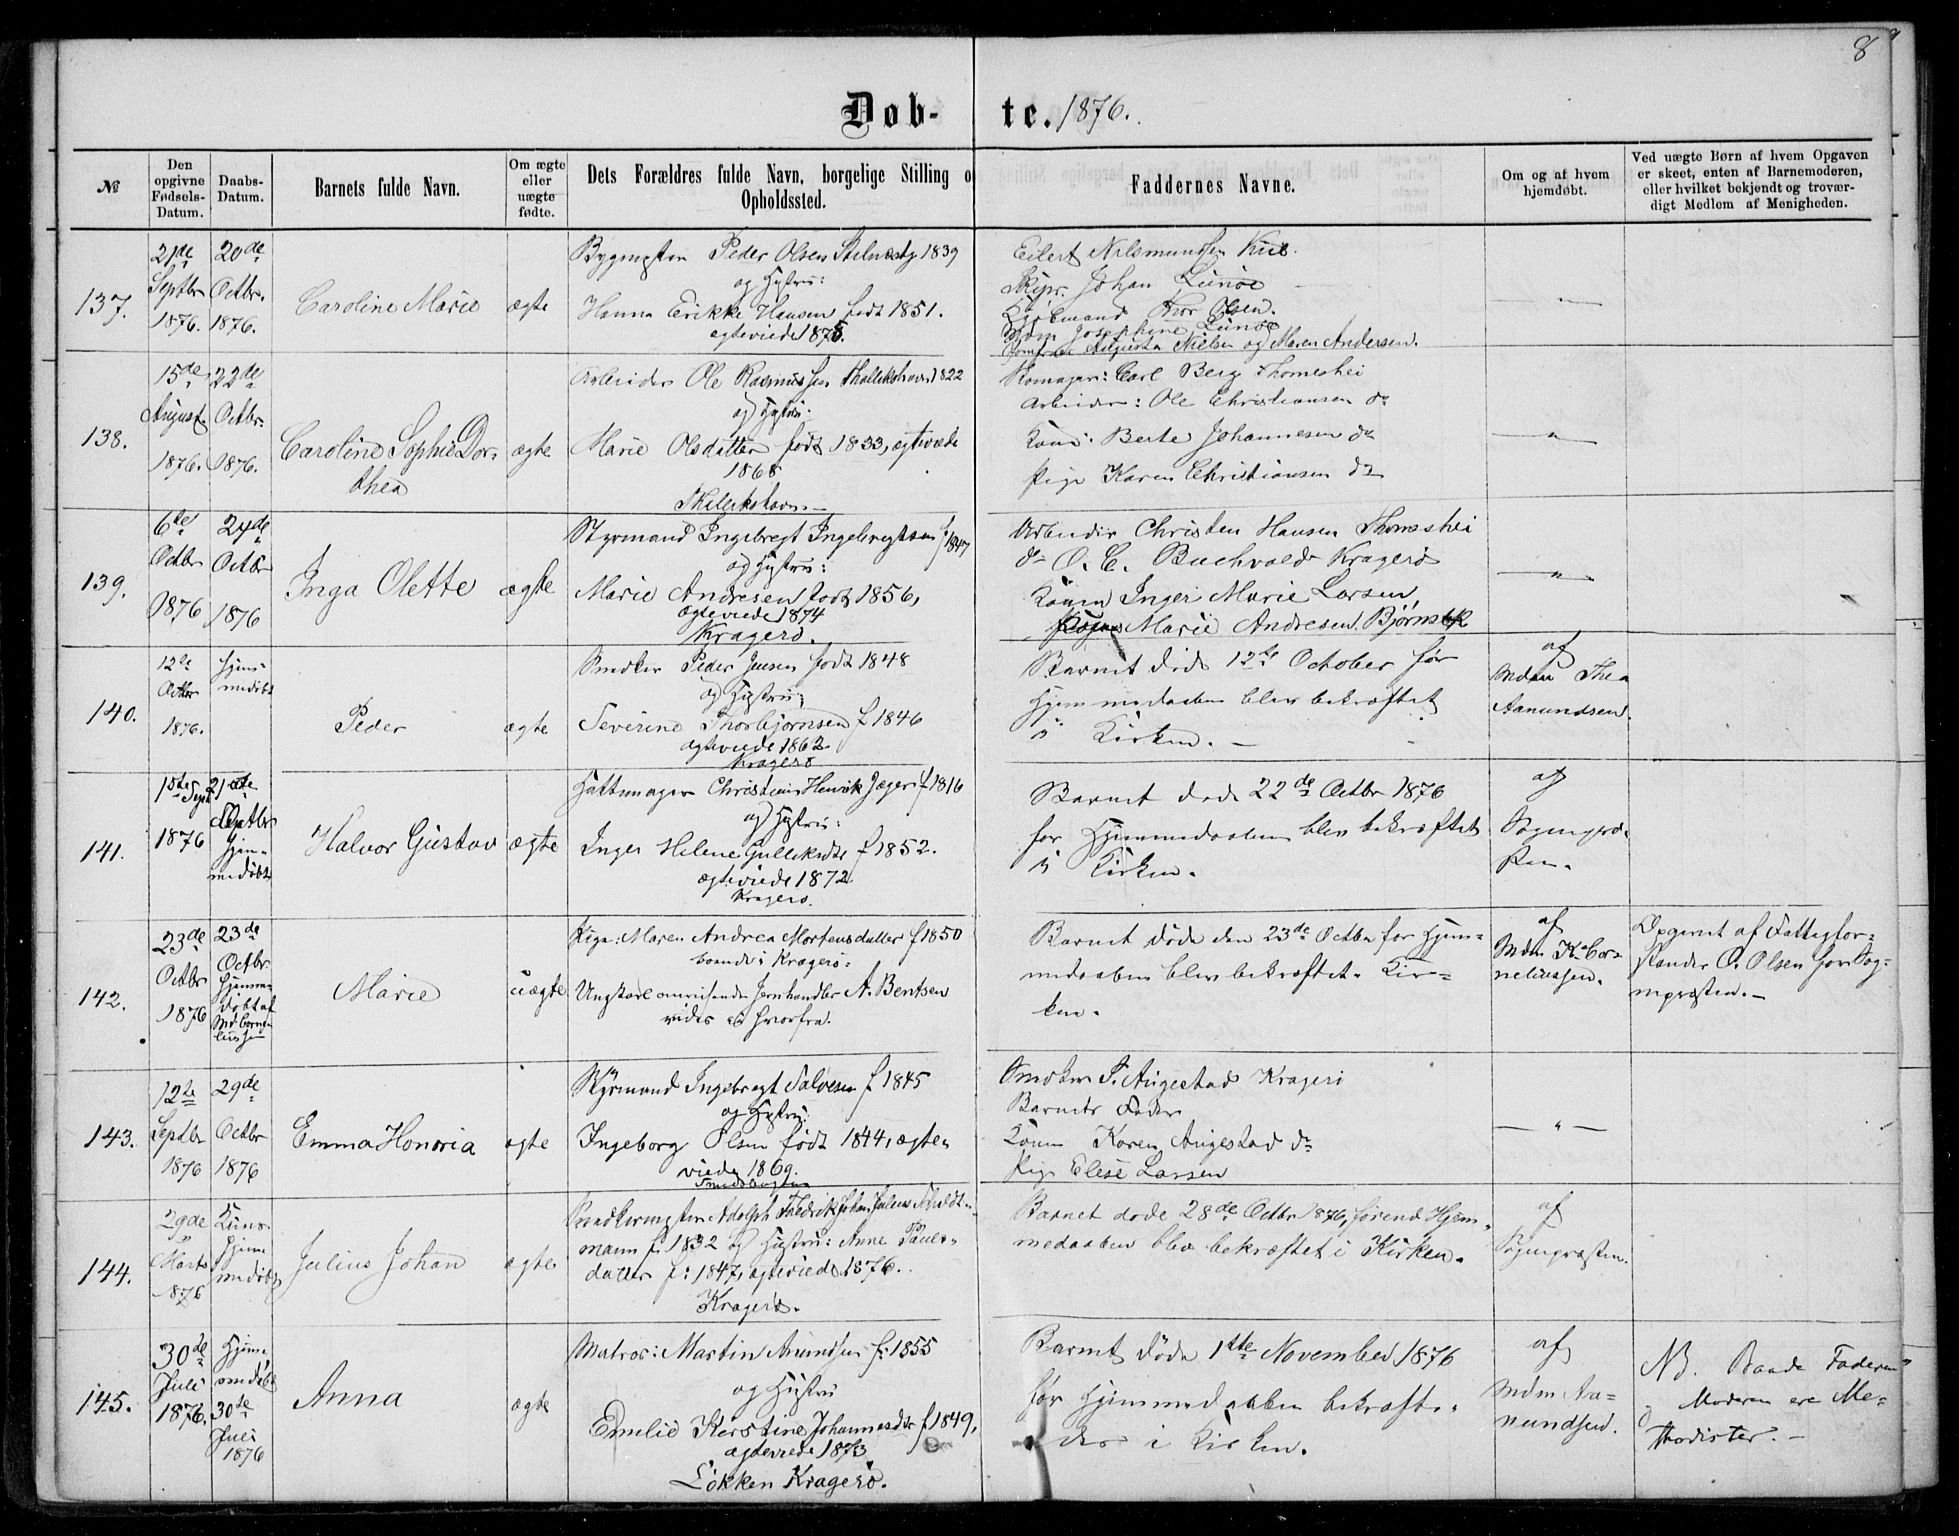 8
Døb- te. 1876.
№
Den opgivne Fødsels-Datum.
Daabs-Datum.
Barnets fulde Navn.
Om ægte eller uægte fødte.
Dets Forældres fulde Navn, borgelige Stilling o
Opholdssted.
Faddernes Navne.
Om og af hvem hjemdøbt.
Ved uægte Børn af hvem Opgaven er skeet, enten af Barnemoderen, eller hvilket bekjendt og troværdigt Medlem af Menigheden.
137.
21de Septbr 1876.
20de Octbr. 1876.
Caroline Marie
ægte
Peder Olsen 1839
og Hustru:
Hanna Erikke Hansen født 1851.
ægteviede 1875.
Eilert
Skipr. Johan Lunøe
Thor Olsen.
Josephine Lunøe
Augusta Nielsen og Maren Andersen.
138.
15de August. 1876.
22de Octbr. 1876.
Caroline Sophie Dor-
thea
ægte
Arbeider Ole Rasmussen 1822
og Hustru:
Marie Olsdatter født 1833, ægteviede
1868
Carl Berg Thomeshei
Arbeider: Ole Christiansen do
Kone: Berte Johannesen do
Pige Karen Christiansen do
139.
6te Octbr 1876
24de Octbr 1876
Inga Olette
ægte
Styrmand Ingebregt Ingebregtsen f 1847
og Hustru:
Marie Andresen født 1856,
ægteviede 1874
Kragerø.
Arbeider Christen Hansen Thomeshei
do O. C. Buchvald Kragerø
Konen Inger Marie Larsen,
Marie Andresen,
140.
12te Octbr 1876.
Hjem-
medøbt
Peder
ægte
Peder Jensen født 1848
og Hustru:
Severine Thorbjørnsen f 1846
ægteviede 1862
Kragerø
Barnet døde 12te October før
Hjemmedaaben blev bekræftet
i Kirken. —
af
Mdm Thea
Aanundsen.
141.
1ste Sept 1876
21de
Hjem-
medøbt
Halvor Gustav
ægte
Hattemager Christian Henrik Jæger f 1816
og Hustru:
Inger Helene f 1852.
ægteviede 1872
Kragerø.
Barnet døde 22de Octbr 1876
før Hjemmedaaben blev bekræftet
i Kirken.
af
142.
23de Octbr 1876
23de Octbr.
Hjemme-
døbt af
Marie
uægte
Pige: Maren Andrea Mortensdatter f 1850
boende i Kragerø:
Ungkarl omreisende Jernhandler A. Bentsen
vides ei hvorfra.
Barnet døde den 23de Octbr før Hjem-
medaaben blev bekræftet i Kir-
ken.
af
Mdm K. Cor-
neliussen.
Opgivet af Fattigfor-
stander O. Olsen for Sog-
nepræsten. —
143.
12te Septbr 1876
29de Octbr 1876
Emma Honoria
ægte
Styrmand Ingebregt Salvesen f 1845
og Hustru:
Ingeborg Olsen født 1844, ægte-
viede 1869.
P. Augestad Kragerø
Barnets Fader
Konen Karen Augestad do
Pige Elese Larsen
144.
29de Marts 1876
Hjem-
medøbt
Julius Johan
ægte
Adolph Fredrik Johan Julius
mann f. 1832 og Hustru: Anne Pauls-
datter f: 1847, ægteviede 1876.
Kragerø.
Barnet døde 28de Octbr 1876, førend Hjem-
medaaben blev bekræftet i Kirken.
af
Sognepræsten.
145.
30de Juli 1876.
Hjem-
medøbt
30te Juli 1876
Anna
ægte
Matros: Martin f: 1855
og Hustru
Emelie Kerstine Johannesdtr f 1849,
ægteviede 1873
Løkken Kragerø.
Barnet døde 1ste November 1876
før Hjemmedaaben bekræfte-
des i Kirken.
af
Mdm Aa-
nundsen.
NB. Baade Faderen
og Moderen ere Me-
thodister. —